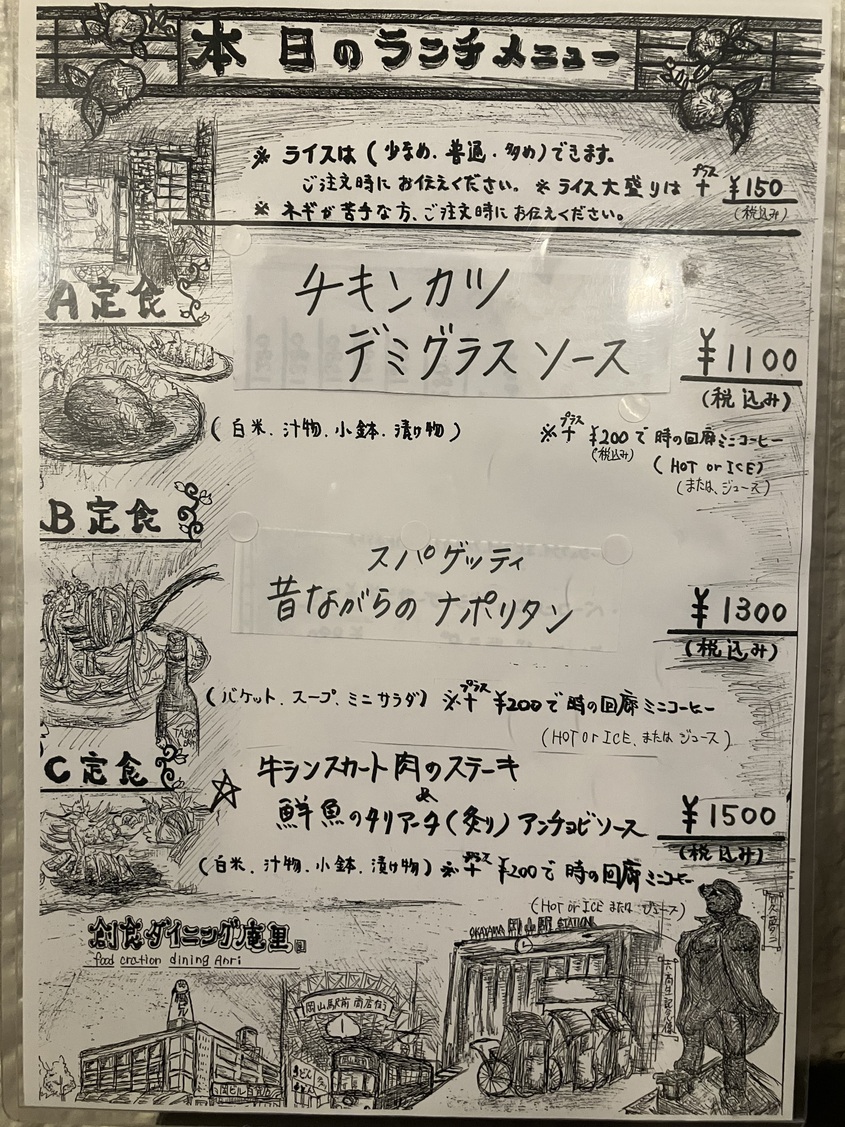 本日のランチメニュー
※ ライスは(少なめ、普通・多め)できます。
ご注文時にお伝えください。 ※ ライス大盛りは プラス + ¥150
(税込み)
※ ネギが苦手な方、ご注文時にお伝えください。
A定食
チキンカツ
デミグラスソース
¥1100
(税込み)
(白米、汁物、小鉢、漬け物)
※ プラス + ¥200で 時の回廊ミニコーヒー
(税込み)
(HOT or ICE)
(または、ジュース)
B定食
スパゲッティ
昔ながらの ナポリタン
¥1300
(税込み)
(バケット、スープ、ミニサラダ) ※ プラス + ¥200で 時の回廊ミニコーヒー
(HOT or ICE、または ジュース)
C定食
☆ 牛シンスカート肉のステーキ
&
鮮魚のタリアータ(炙り)アンチョビソース
¥1500
(税込み)
(白米、汁物、小鉢、漬け物) ※ プラス + ¥200で 時の回廊ミニコーヒー
(HOT or ICE または ジュース)
創食ダイニング庵里
food cration dining Anri
OKAYAMA STATION
岡山駅前商店街
岡ビル百貨店
うどん